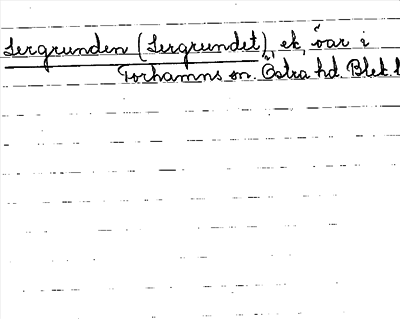 Lergrunden (Lergrundet), ek, öar i
Torhamns sn. Östra hd. Blek. l